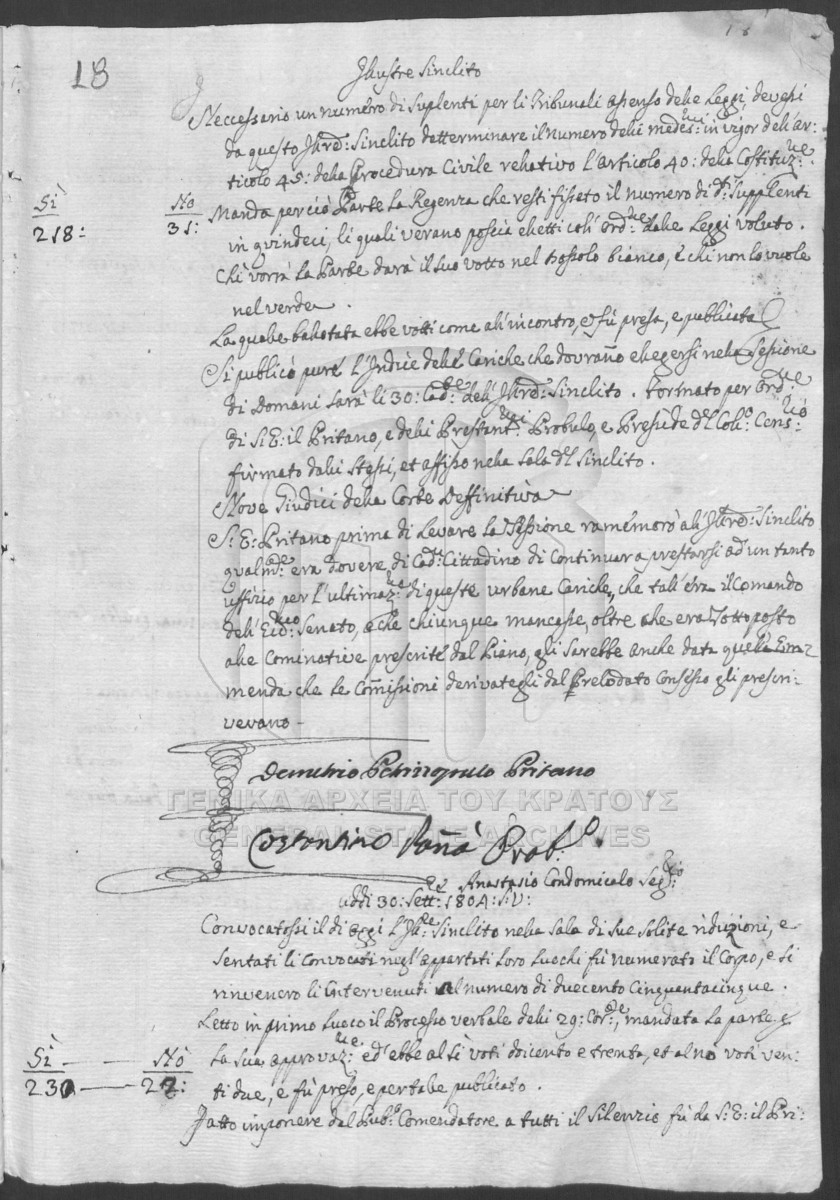 18
Illustre Sinclito
Neccessario un numero di Suplenti per li Tribunali a senso delle Leggi, devesi
da questo Illred: Sinclito detterminare il numero delli medes:mi in vigor dell'ar-
ticolo 45: della Procedura Civile relativo l'articolo 40: della Costituz:ne
Sì No
218: 31:
Manda perciò Parte la Regenza che resti fissato il numero di d:i Supplenti
in qvindeci, li quali verano poscia eletti coll'ord:ne dalle Leggi voluto.
Chi vorrà la Parte darà il suo votto nel Bossolo bianco, è chi non lo vuole
nel verde.
La quale ballotata ebbe votti come all'incontro, e fù presa, e publicata
Si publicò pure l'Indice delle Cariche che dovrano elegersi nella Sessione
di Domani sarà li 30: Cad:te dell'Illred: Sinclito. Formato per ord:ne
di S:E: il Pritano, e delli Prestant:mi Probulo, e Preside del Coll:o Cens:rio
firmato dalli stessi, et affisso nella Sala del Sinclito.
Nove Giudici della Corte Deffinitiva
S:E: Pritano prima di Levare la Sessione ramemorò all'Illred: Sinclito
qualm:te era dovere di Cad:n Cittadino di continuar a prestarsi ad un tanto
uffizio per l'ultimaz:ne di queste urbane Cariche, che tall'era il Comando
dell'Ecc:mo Senato, e che chiunque mancasse, oltre che era sottoposto
alle Cominative prescritte dal Piano, gli sarebbe anche data quella Em-
menda che le Comissioni derivategli dal Prelodato Consesso gli prescri-
vevano
Demetrio Petrizopulo Pritano
Costantino Pannà Prob:o
Anastasio Condomicalo Seg:rio
Addi 30: Sett:e 1804: S:V:
Convocatossi il di oggi l'Ill:re Sinclito nella Sala di Sue Solite riduzioni, e
sentati li Convocati negl'appartati Loro Luochi fù numerato il Corpo, e si
rinvenero li Intervenuti al numero di duecento Cinquantacinque.
Letto in primo Luoco il Processo verbale delli 29: Cor:te, mandata La parte p
Sì No
230 27:
La sua approvaz:ne ed'ebbe al Sì voti doicento e trenta, et al no voti ven-
ti due, e fù preso, e per tale publicato.
Fatto imponere dal Pub:o Comendatore a tutti il Silenzio fù da S:E: il Pri-
ΓΕΝΙΚΑ ΑΡΧΕΙΑ ΤΟΥ ΚΡΑΤΟΥΣ
GENERAL STATE ARCHIVES